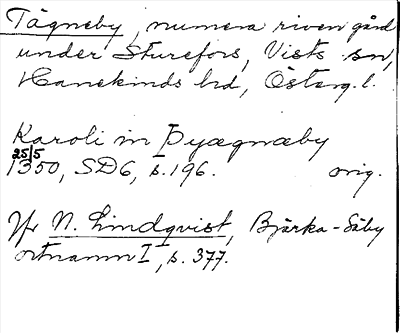 Tägneby, numera riven gård
under Sturefors, Vists sn,
Hanekinds hd, Österg. l.
Karoli in Þyægnæby
25/5
1350, SD6, s. 196. orig.
Jfr N. Lindqvist, Bjärka-Säby
ortnamn I, s. 377.